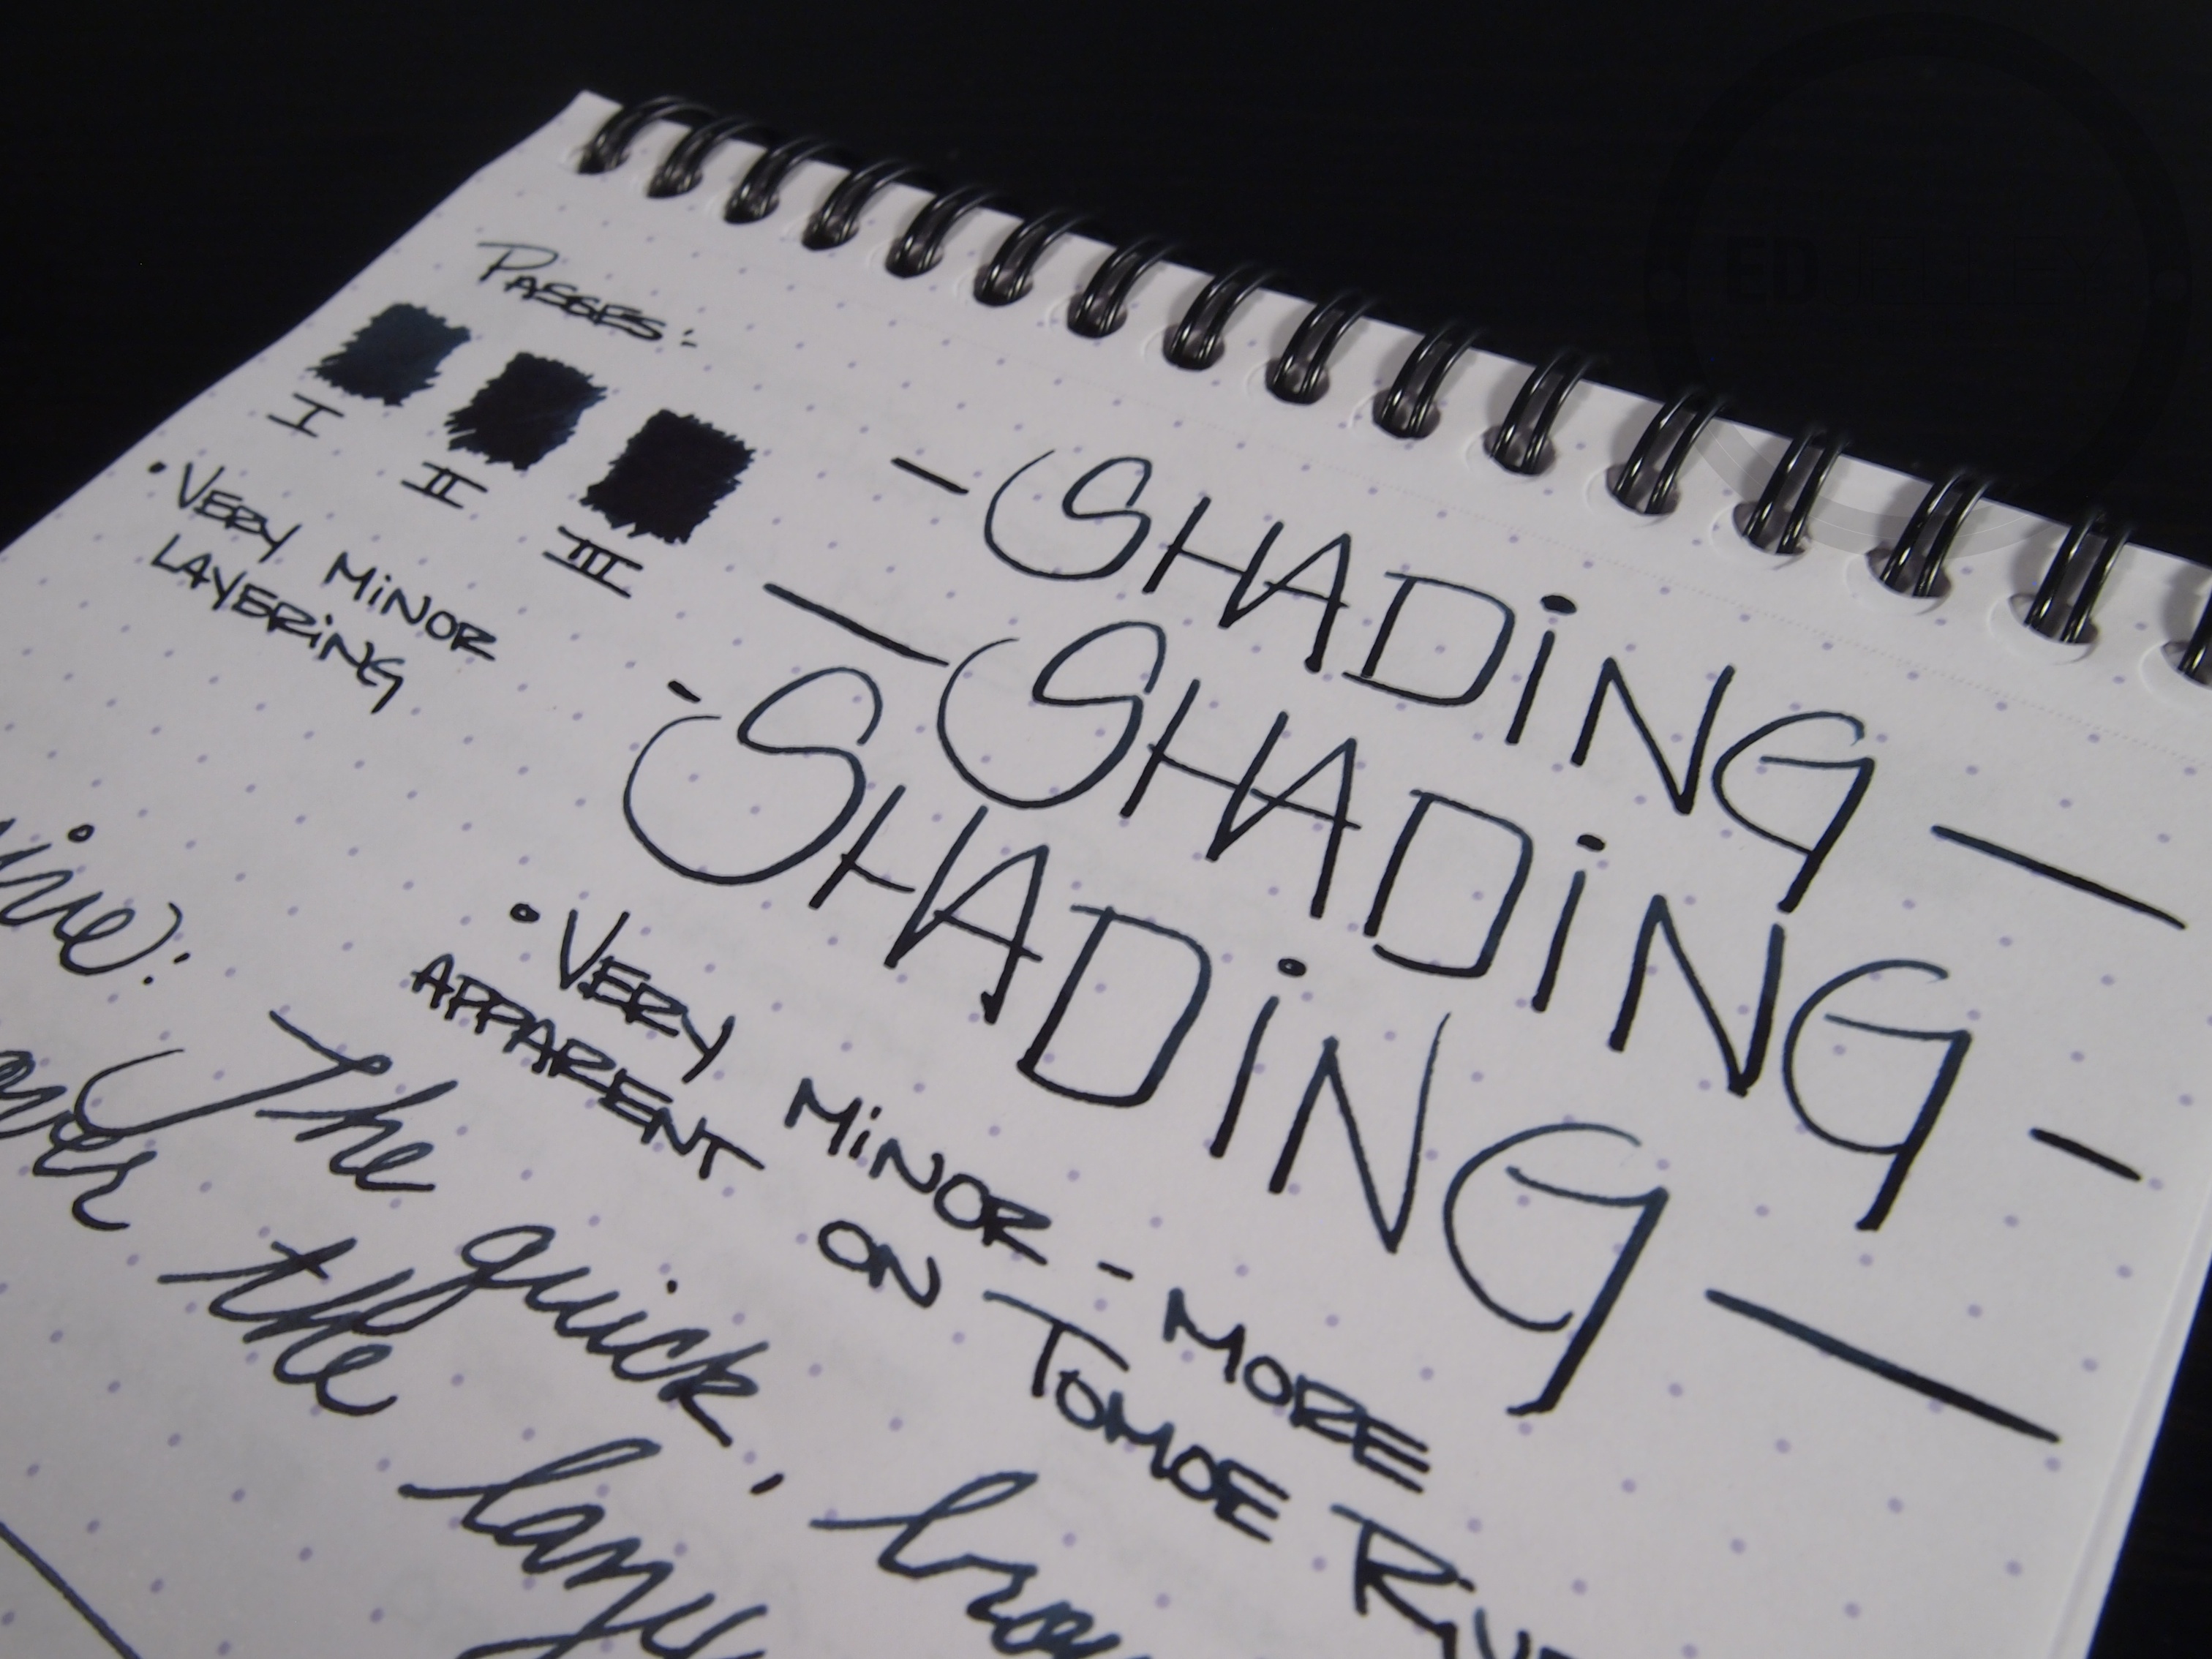 PASSES:
I II III
• VERY MINOR
LAYERING
- SHADING -
- SHADING -
- SHADING -
• VERY MINOR - MORE
APPARENT ON TOMOE
The quick, 
the lazy